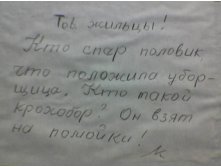 Тов. жильцы!
Кто спёр половик,
что положила убор-
щица. Кто такой
крохобор? Он взят
на помойки!